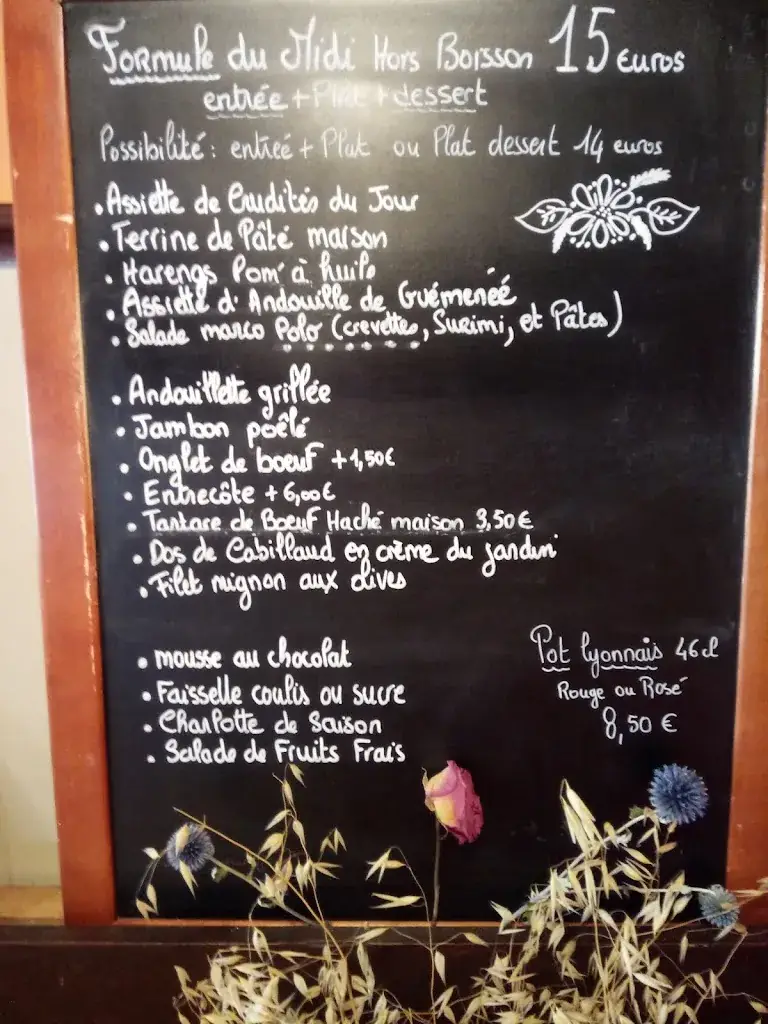 Formule du Midi Hors Boisson 15 euros
entrée + Plat + dessert
Possibilité : entreé + Plat ou Plat dessert 14 euros
• Assiette de Crudités du Jour
• Terrine de Pâté maison
• Harengs Pom' à huile
• Assiette d'Andouille de Guémeneé
• Salade marco Polo (crevettes, Surimi, et Pâtes)
• Andouillette grillée
• Jambon poêlé
• Onglet de boeuf +1,50€
• Entrecôte +6,00€
• Tartare de Boeuf Haché maison 3,50€
• Dos de Cabillaud en crème du jardin
• Filet mignon aux olives
• mousse au chocolat
• Faisselle coulis ou sucre
• Charlotte de Saison
• Salade de Fruits Frais
Pot lyonnais 46cl
Rouge ou Rosé
8,50 €